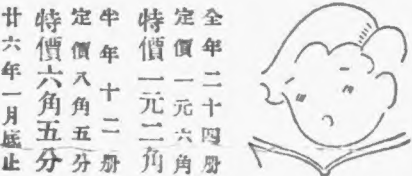 全年二十四册
定價一元六角
特價一元二角
半年十二册
定價八角五分
特價六角五分
廿六年一月底止